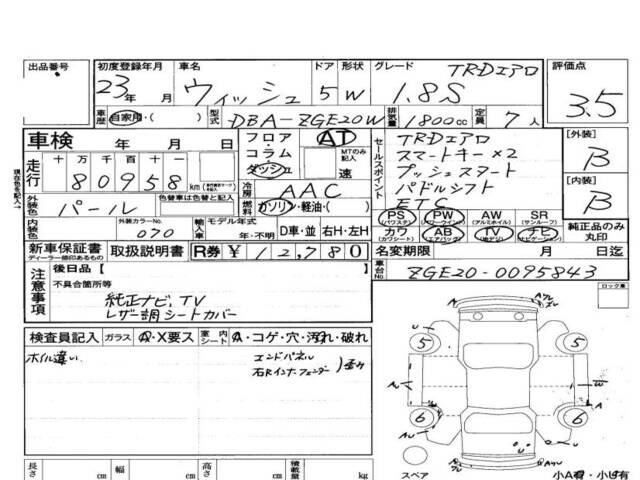 出品番号 初度登録年月 車名 ドア 形状 グレード TRDエアロ 評価点
23年 月 ウィッシュ 5 W 1.8S 3.5
車歴 自家用・( ) 型式 DBA-ZGE20W 排気量 1800cc 定員 7人
車検 年 月 日 フロア・コラム・ダッシュ AT MTのみ記入 速
セールスポイント TRDエアロ
スマートキー×2
プッシュスタート
パドルシフト
ETC
[外装] B
[内装] B
走行 十万千百十一 80958 km
冷房 AAC
外装色 パール 色替車は色替と記入 燃料 ガソリン・軽油・( )
内装色 外装カラーNo. 070 輸入車 モデル年式 年・不明 D車・並 右H・左H
PS (パワステ) PW (パワーウィンド) AW (アルミホイル) SR (サンルーフ)
カワ (カワシート) AB (エアバッグ) TV (地デジ) ナビ (ナビゲーション)
純正品のみ丸印
新車保証書 ディーラー印のあるもの 取扱説明書 R券 ¥12,780
名変期限 月 日迄
車台No. ZGE20-0095843
注意事項 後日品 [ ]
不具合箇所等
純正ナビ、TV
レザー調シートカバー
ロック車
検査員記入 ガラス A・X要ス 室内シート A・コゲ・穴・汚れ・破れ
ホイル違い
エンドパネル
右Rインナーフェンダー )歪み
A U
5 5
A W
6 6
AU A
U
長さ cm 幅 cm 高さ cm 積載量 kg
スペア 小A有・小U有
現在色を記入